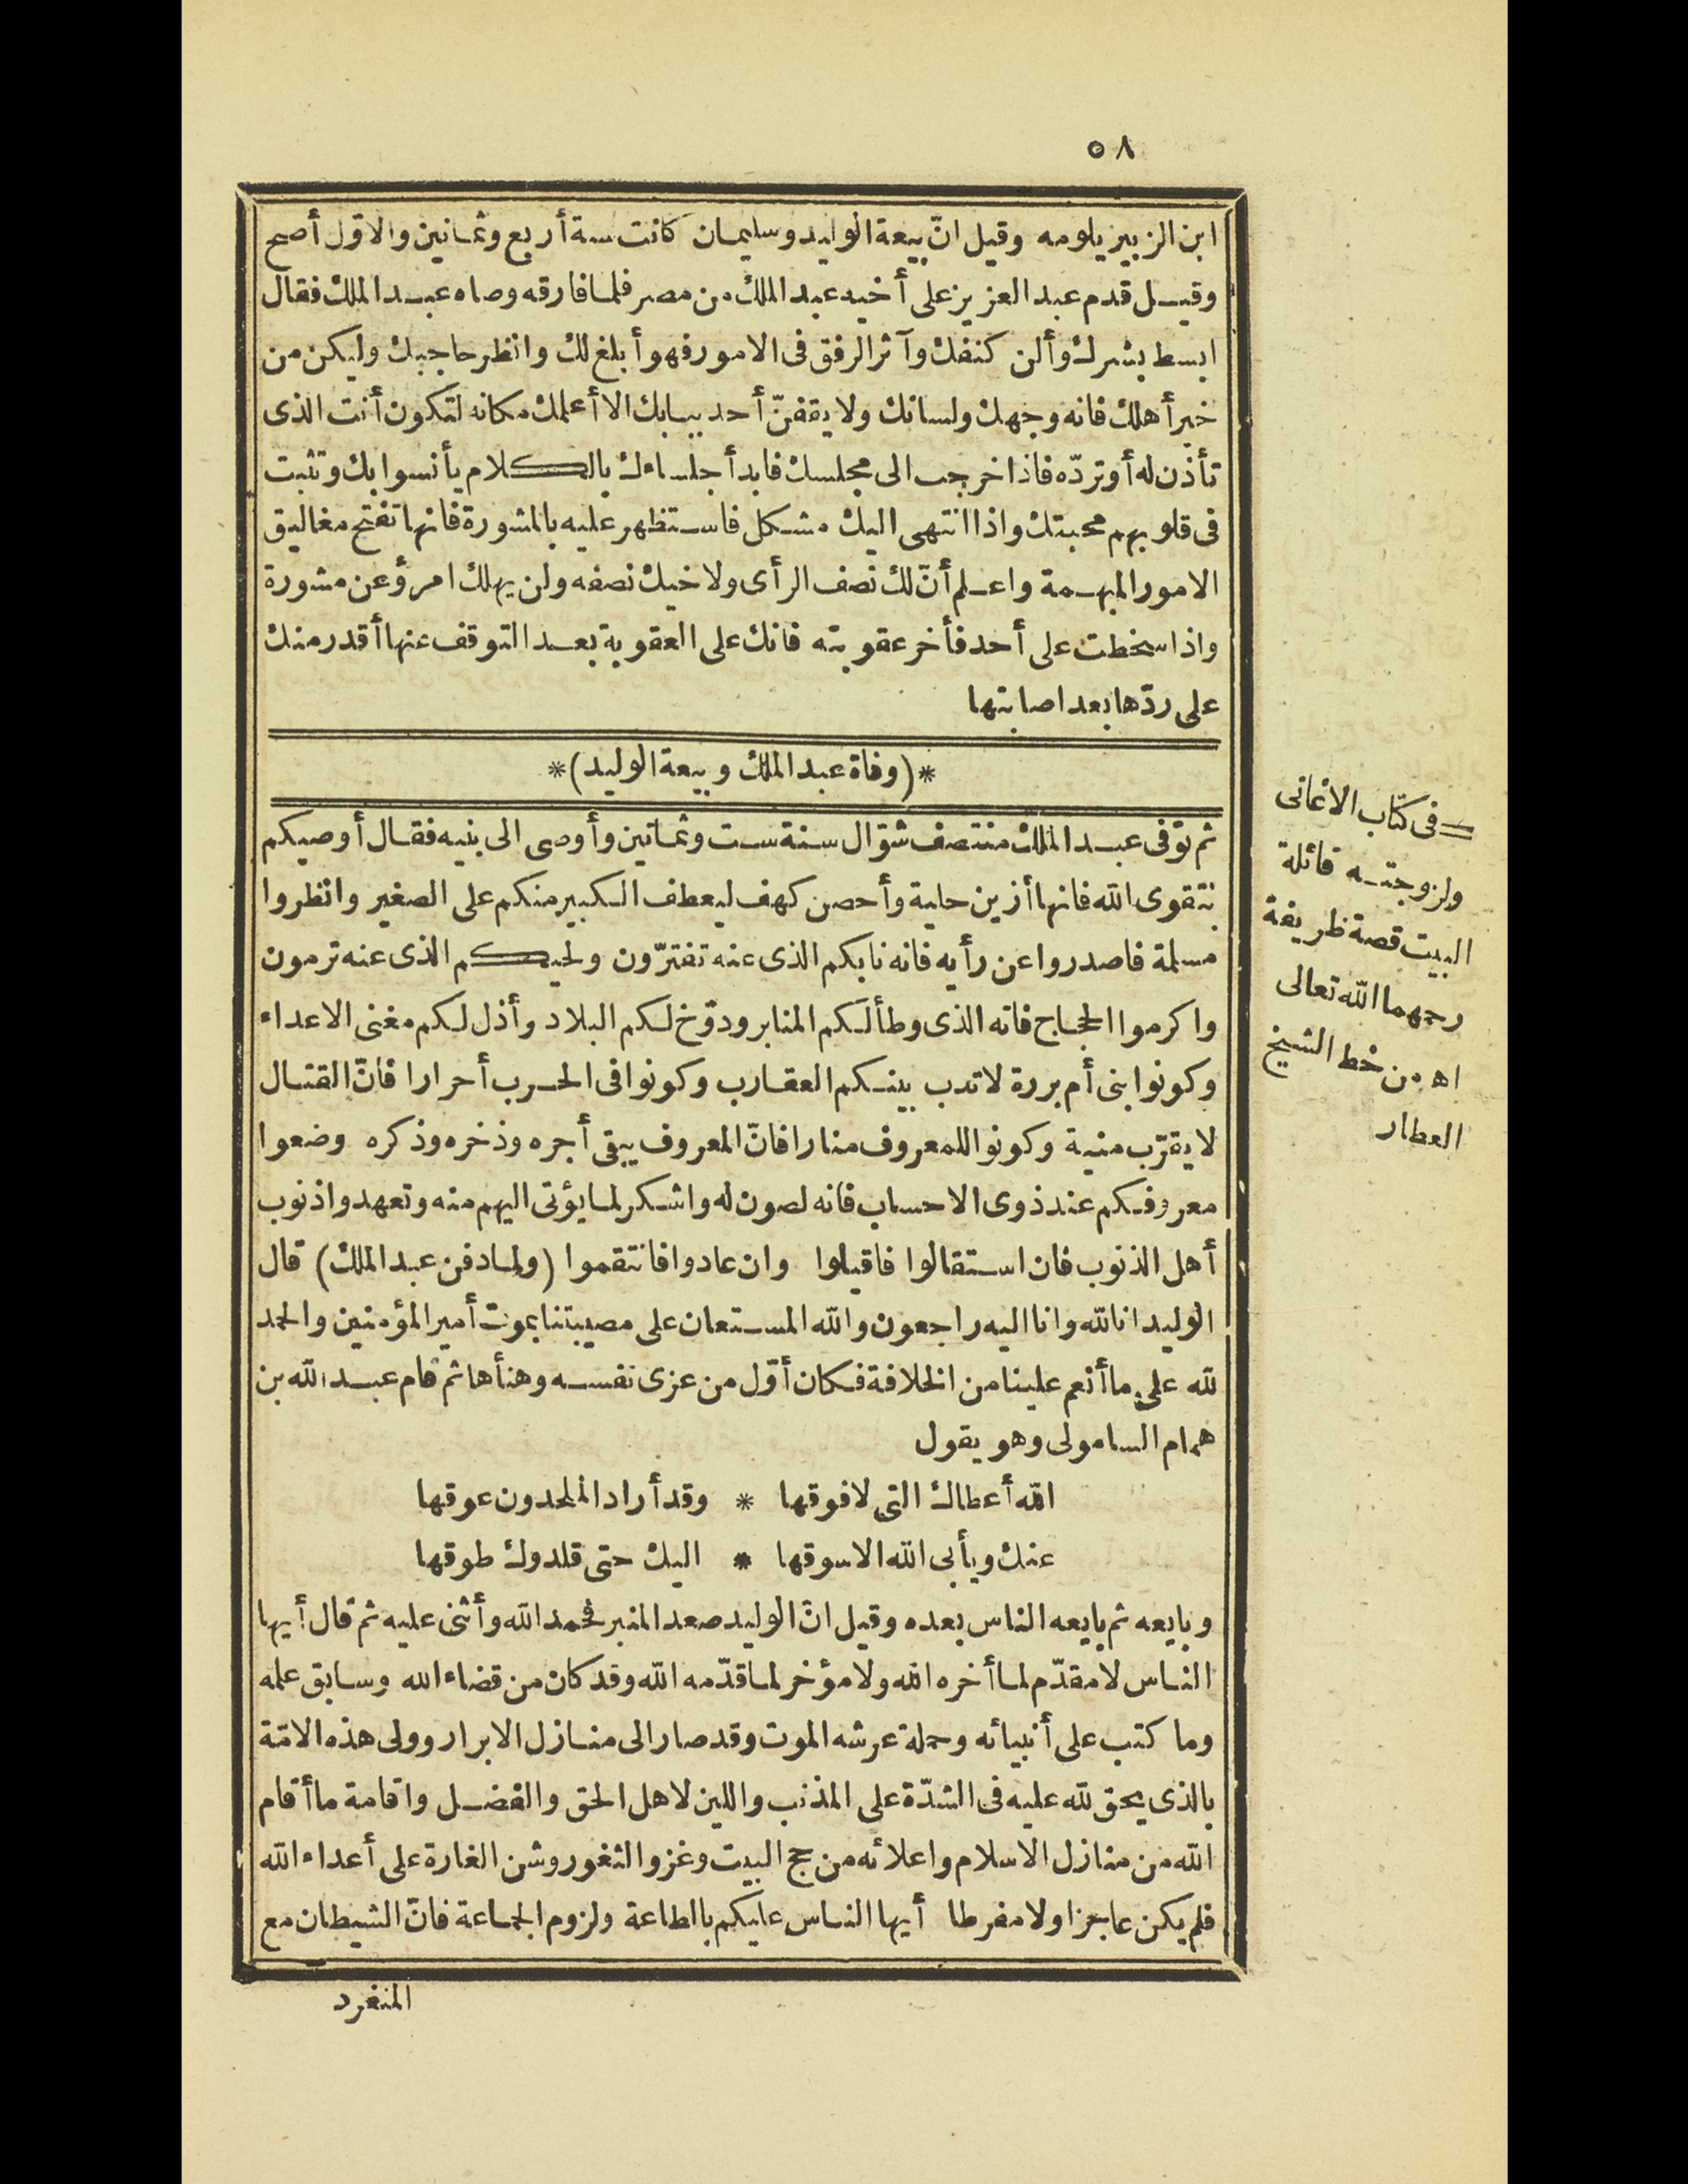 ٥٨
ابن الزبير يلومه وقيل انّ بيعة الوليد وسليمان كانت سنة أربع وثمانين والاوّل أصح
وقيل قدم عبد العزيز على أخيه عبد الملك من مصر فلما فارقه وصاه عبد الملك فقال
ابسط بشرك وألن كنفك وآثر الرفق فى الامور فهو أبلغ لك وانظر حاجبك وليكن من
خير أهلك فانه وجهك ولسانك ولا يقفنّ أحد ببابك الا أعلمك مكانه لتكون أنت الذى
تأذن له أو تردّه فاذا خرجت الى مجلسك فابدأ جلساءك بالكلام يأنسوا بك وتثبت
فى قلوبهم محبتك واذا انتهى اليك مشكل فاستظهر عليه بالمشورة فانها تفتح مغاليق
الامور المبهمة واعلم أنّ لك نصف الرأى ولاخيك نصفه ولن يهلك امرؤ عن مشورة
واذا سخطت على أحد فأخر عقوبته فانك على العقوبة بعد التوقف عنها أقدر منك
على ردّها بعد اصابتها
*(وفاة عبد الملك وبيعة الوليد)*
ثم توفى عبد الملك منتصف شوّال سنة ست وثمانين وأوصى الى بنيه فقال أوصيكم
بتقوى الله فانها أزين حلية وأحصن كهف ليعطف الكبير منكم على الصغير وانظروا
مسلمة فاصدروا عن رأيه فانه نابكم الذى عنه تفترّون ولحيكم الذى عنه ترمون
واكرموا الحجاج فانه الذى وطأ لكم المنابر ودوّخ لكم البلاد وأذل لكم مغنى الاعداء
وكونوا بنى أم بررة لا تدب بينكم العقارب وكونوا فى الحرب أحرارا فانّ القتال
لا يقرّب منية وكونوا للمعروف منارا فانّ المعروف يبقى أجره وذخره وذكره وضعوا
معروفكم عند ذوى الاحساب فانه لصون له واشكر لما يؤتى اليهم منه وتعهدوا ذنوب
أهل الذنوب فان استقالوا فاقيلوا وان عادوا فانتقموا (ولما دفن عبد الملك) قال
الوليد انا لله وانا اليه راجعون والله المستعان على مصيبتنا بموت أمير المؤمنين والحمد
لله على ما أنعم علينا من الخلافة فكان أوّل من عزى نفسه وهنأها ثم قام عبد الله بن
همام السامولى وهو يقول
الله أعطاك التى لا فوقها * وقد أراد الملحدون عوقها
عنك ويأبى الله الا سوقها * اليك حتى قلدوك طوقها
وبايعه ثم بايعه الناس بعده وقيل انّ الوليد صعد المنبر فحمد الله وأثنى عليه ثم قال أيها
الناس لا مقدّم لما أخره الله ولا مؤخر لما قدّمه الله وقد كان من قضاء الله وسابق علمه
وما كتب على أنبيائه وحملة عرشه الموت وقد صار الى منازل الابرار وولى هذه الامّة
بالذى يحق لله عليه فى الشدّة على المذنب واللين لاهل الحق والفضل واقامة ما أقام
الله من منازل الاسلام واعلائه من حج البيت وغزو الثغور وشن الغارة على أعداء الله
فلم يكن عاجزا ولا مفرطا أيها الناس عليكم بالطاعة ولزوم الجماعة فانّ الشيطان مع
المنفرد
= فى كتاب الاغانى
ولزوجته قائلة
البيت قصة ظريفة
رحمهما الله تعالى
اه من خط الشيخ
العطار